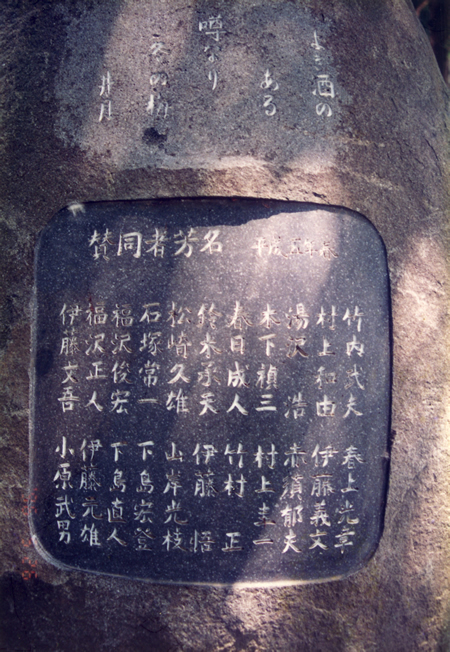 よき酒の
ある
噂なり
冬の梅
井月
賛同者芳名 平成五年春
竹内 夫
村上和由
湯沢 浩
木下禎三
春日成人
鈴木承天
松崎久雄
石塚常一
福沢俊宏
福沢正人
伊藤文吾
春上光章
伊藤義文
赤須郁夫
村上圭一
竹村 正
伊藤 悟
山岸光枝
下島宏登
下島直人
伊藤元雄
小原武男